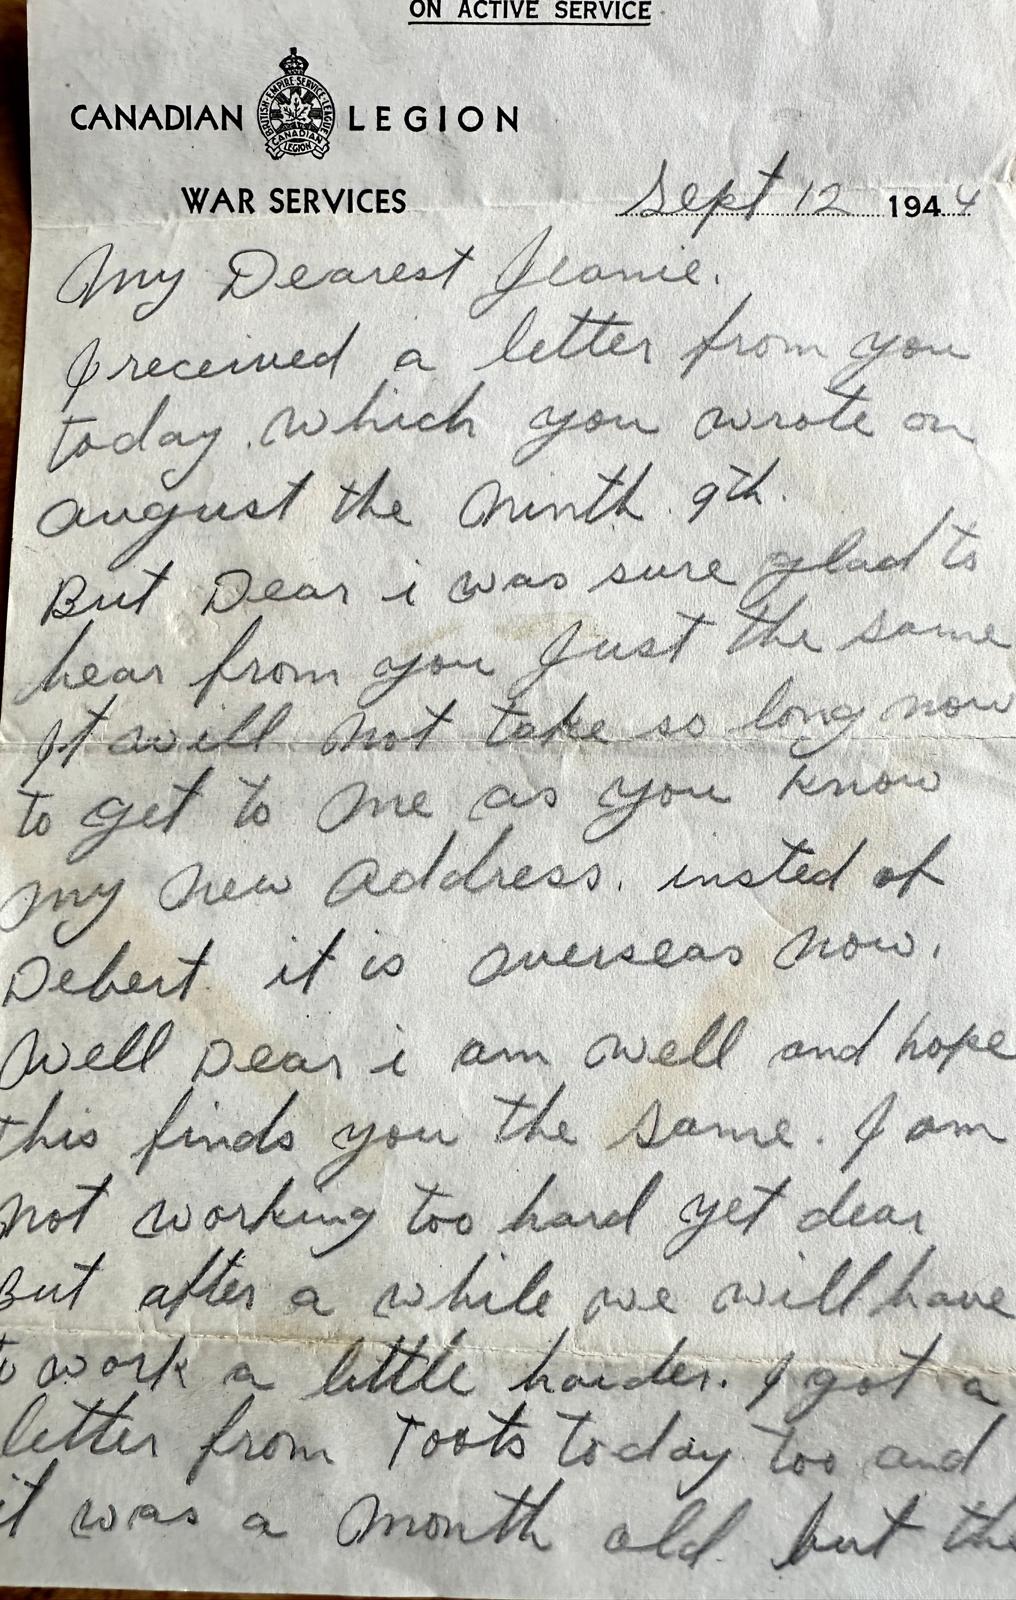 ON ACTIVE SERVICE
CANADIAN LEGION
BRITISH EMPIRE SERVICE LEAGUE
CANADIAN
LEGION
WAR SERVICES
Sept 12 1944
My Dearest Jeanie.
I received a letter from you
today. which you wrote on
august the ninth. 9th.
But Dear i was sure glad to
hear from you Just the same
It will not take so long now
to get to me as you know
my new address. insted of
Debert. it is overseas now.
Well Dear i am well and hope
this finds you the same. I am
not working too hard yet dear
But after a while we will have
to work a little harder. I got a
letter from Toots today too and
it was a month old. but the